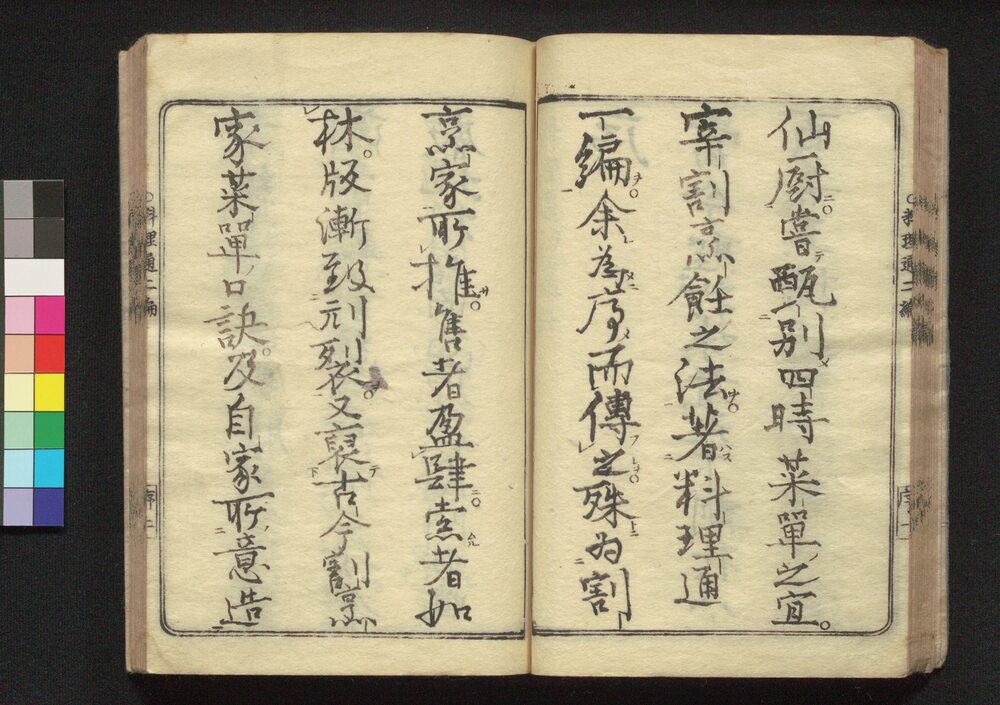 ○料理通二編 序一
仙厨嘗甄別四時菜單之宜。
宰割烹飪之法著料理通
一編余為序而傳之殊為割
烹家所推售者盈肆索者如
林。版漸致刓裂。又裒古今割烹
家菜單口訣。及自家所意造
○料理通二編 序二